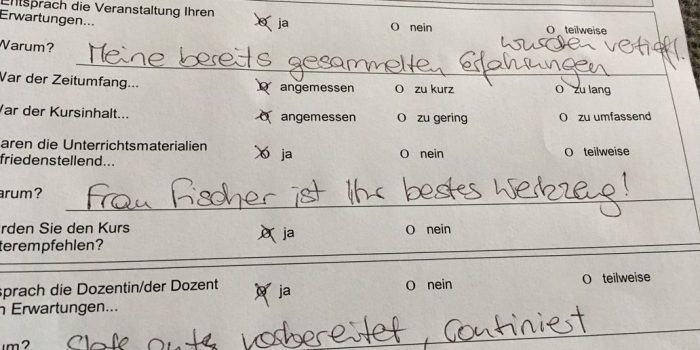 Entsprach die Veranstaltung Ihren
Erwartungen... ja O nein O teilweise
Warum? Meine bereits gesammelten Erfahrungen wurden vertieft.
War der Zeitumfang... angemessen O zu kurz O zu lang
War der Kursinhalt... angemessen O zu gering O zu umfassend
aren die Unterrichtsmaterialien
friedenstellend... ja O nein O teilweise
arum? Frau Fischer ist Ihr bestes Werkzeug!
rden Sie den Kurs
terempfehlen? ja O nein
sprach die Dozentin/der Dozent
n Erwartungen... ja O nein O teilweise
um? vorbereitet,